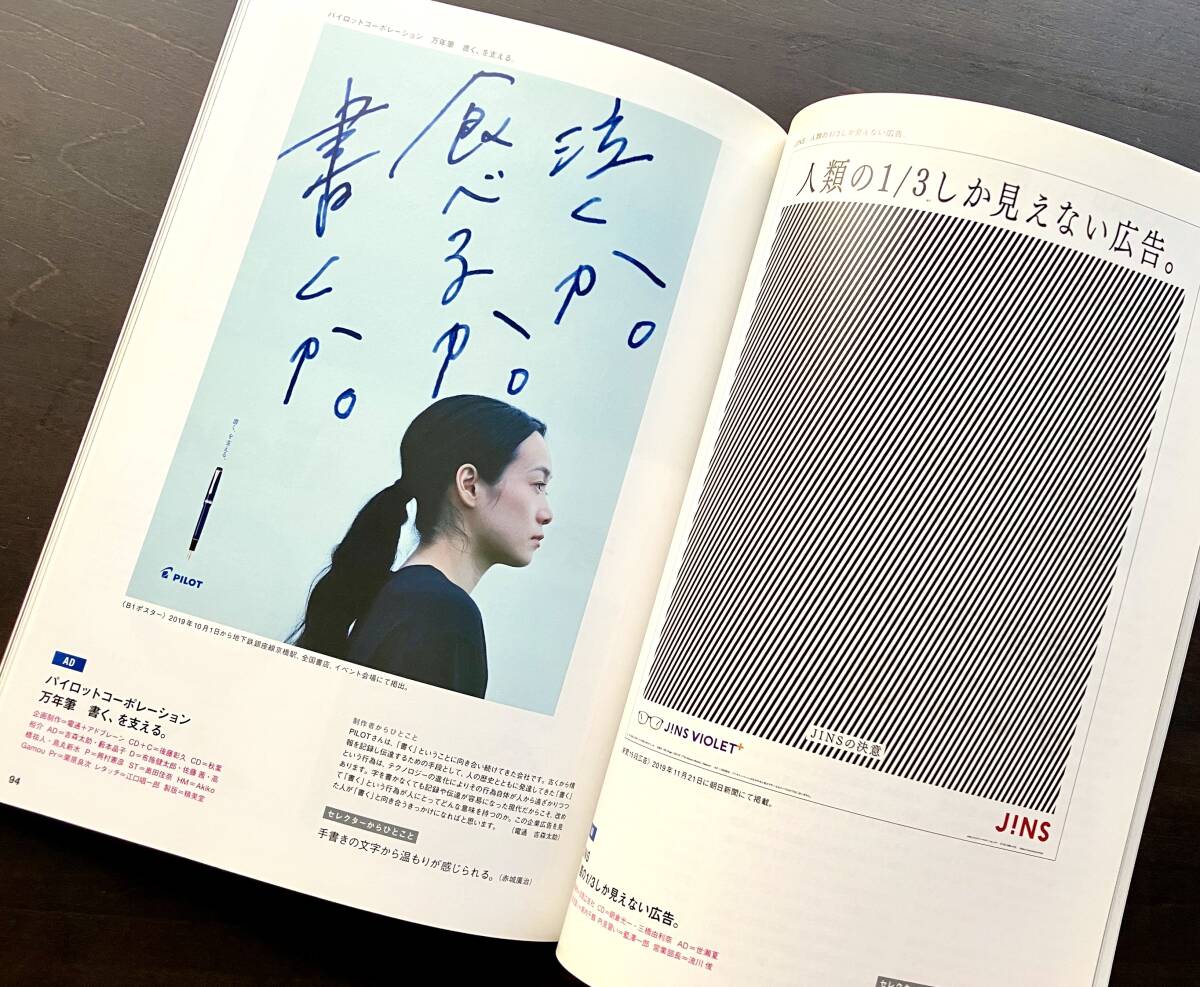 パイロットコーポレーション 万年筆 書く、を支える。
泣くか。
食べるか。
書くか。
書く、を支える。
PILOT
（B1ポスター）2019年10月1日から地下鉄銀座線京橋駅、全国書店、イベント会場にて掲出。
AD
パイロットコーポレーション
万年筆 書く、を支える。
企画制作＝電通＋アドブレーン CD＋C＝後藤彰久 CD＝秋葉
裕介 AD＝吉森太助・藪本晶子 D＝布施健太郎・佐藤茜・高
橋祐人・鳥丸新水 P＝興村憲彦 ST＝奥田佳奈 HM＝Akiko
Gamou Pr＝栗原良次 レタッチ＝江口唱一郎 製版＝精美堂
制作者からひとこと
PILOTさんは、「書く」ということに向き合い続けてきた会社です。古くから情
報を記録し伝達するための手段として、人の歴史とともに発達してきた「書く」
という行為が、テクノロジーの進化によりその行為自体が人から遠ざかりつつ
あります。字を書かなくても記録や伝達が容易になった現代だからこそ、改め
て「書く」という行為が人にとってどんな意味を持つのか。この企業広告を見
た人が「書く」と向き合うきっかけになればと思います。 （電通 吉森太助）
セレクターからひとこと
手書きの文字から温もりが感じられる。（赤城廣治）
94
JINS 人類の1/3しか見えない広告。
人類の1/3しか見えない広告。
J!NS VIOLET+
JINSの決意
J!NS
15日広告）2019年11月21日に朝日新聞にて掲載。
NS
の1/3しか見えない広告。
CD＝朝倉允一・三橋由利奈 AD＝世瀬夏
一郎 営業部長＝流川 俊
セレクター